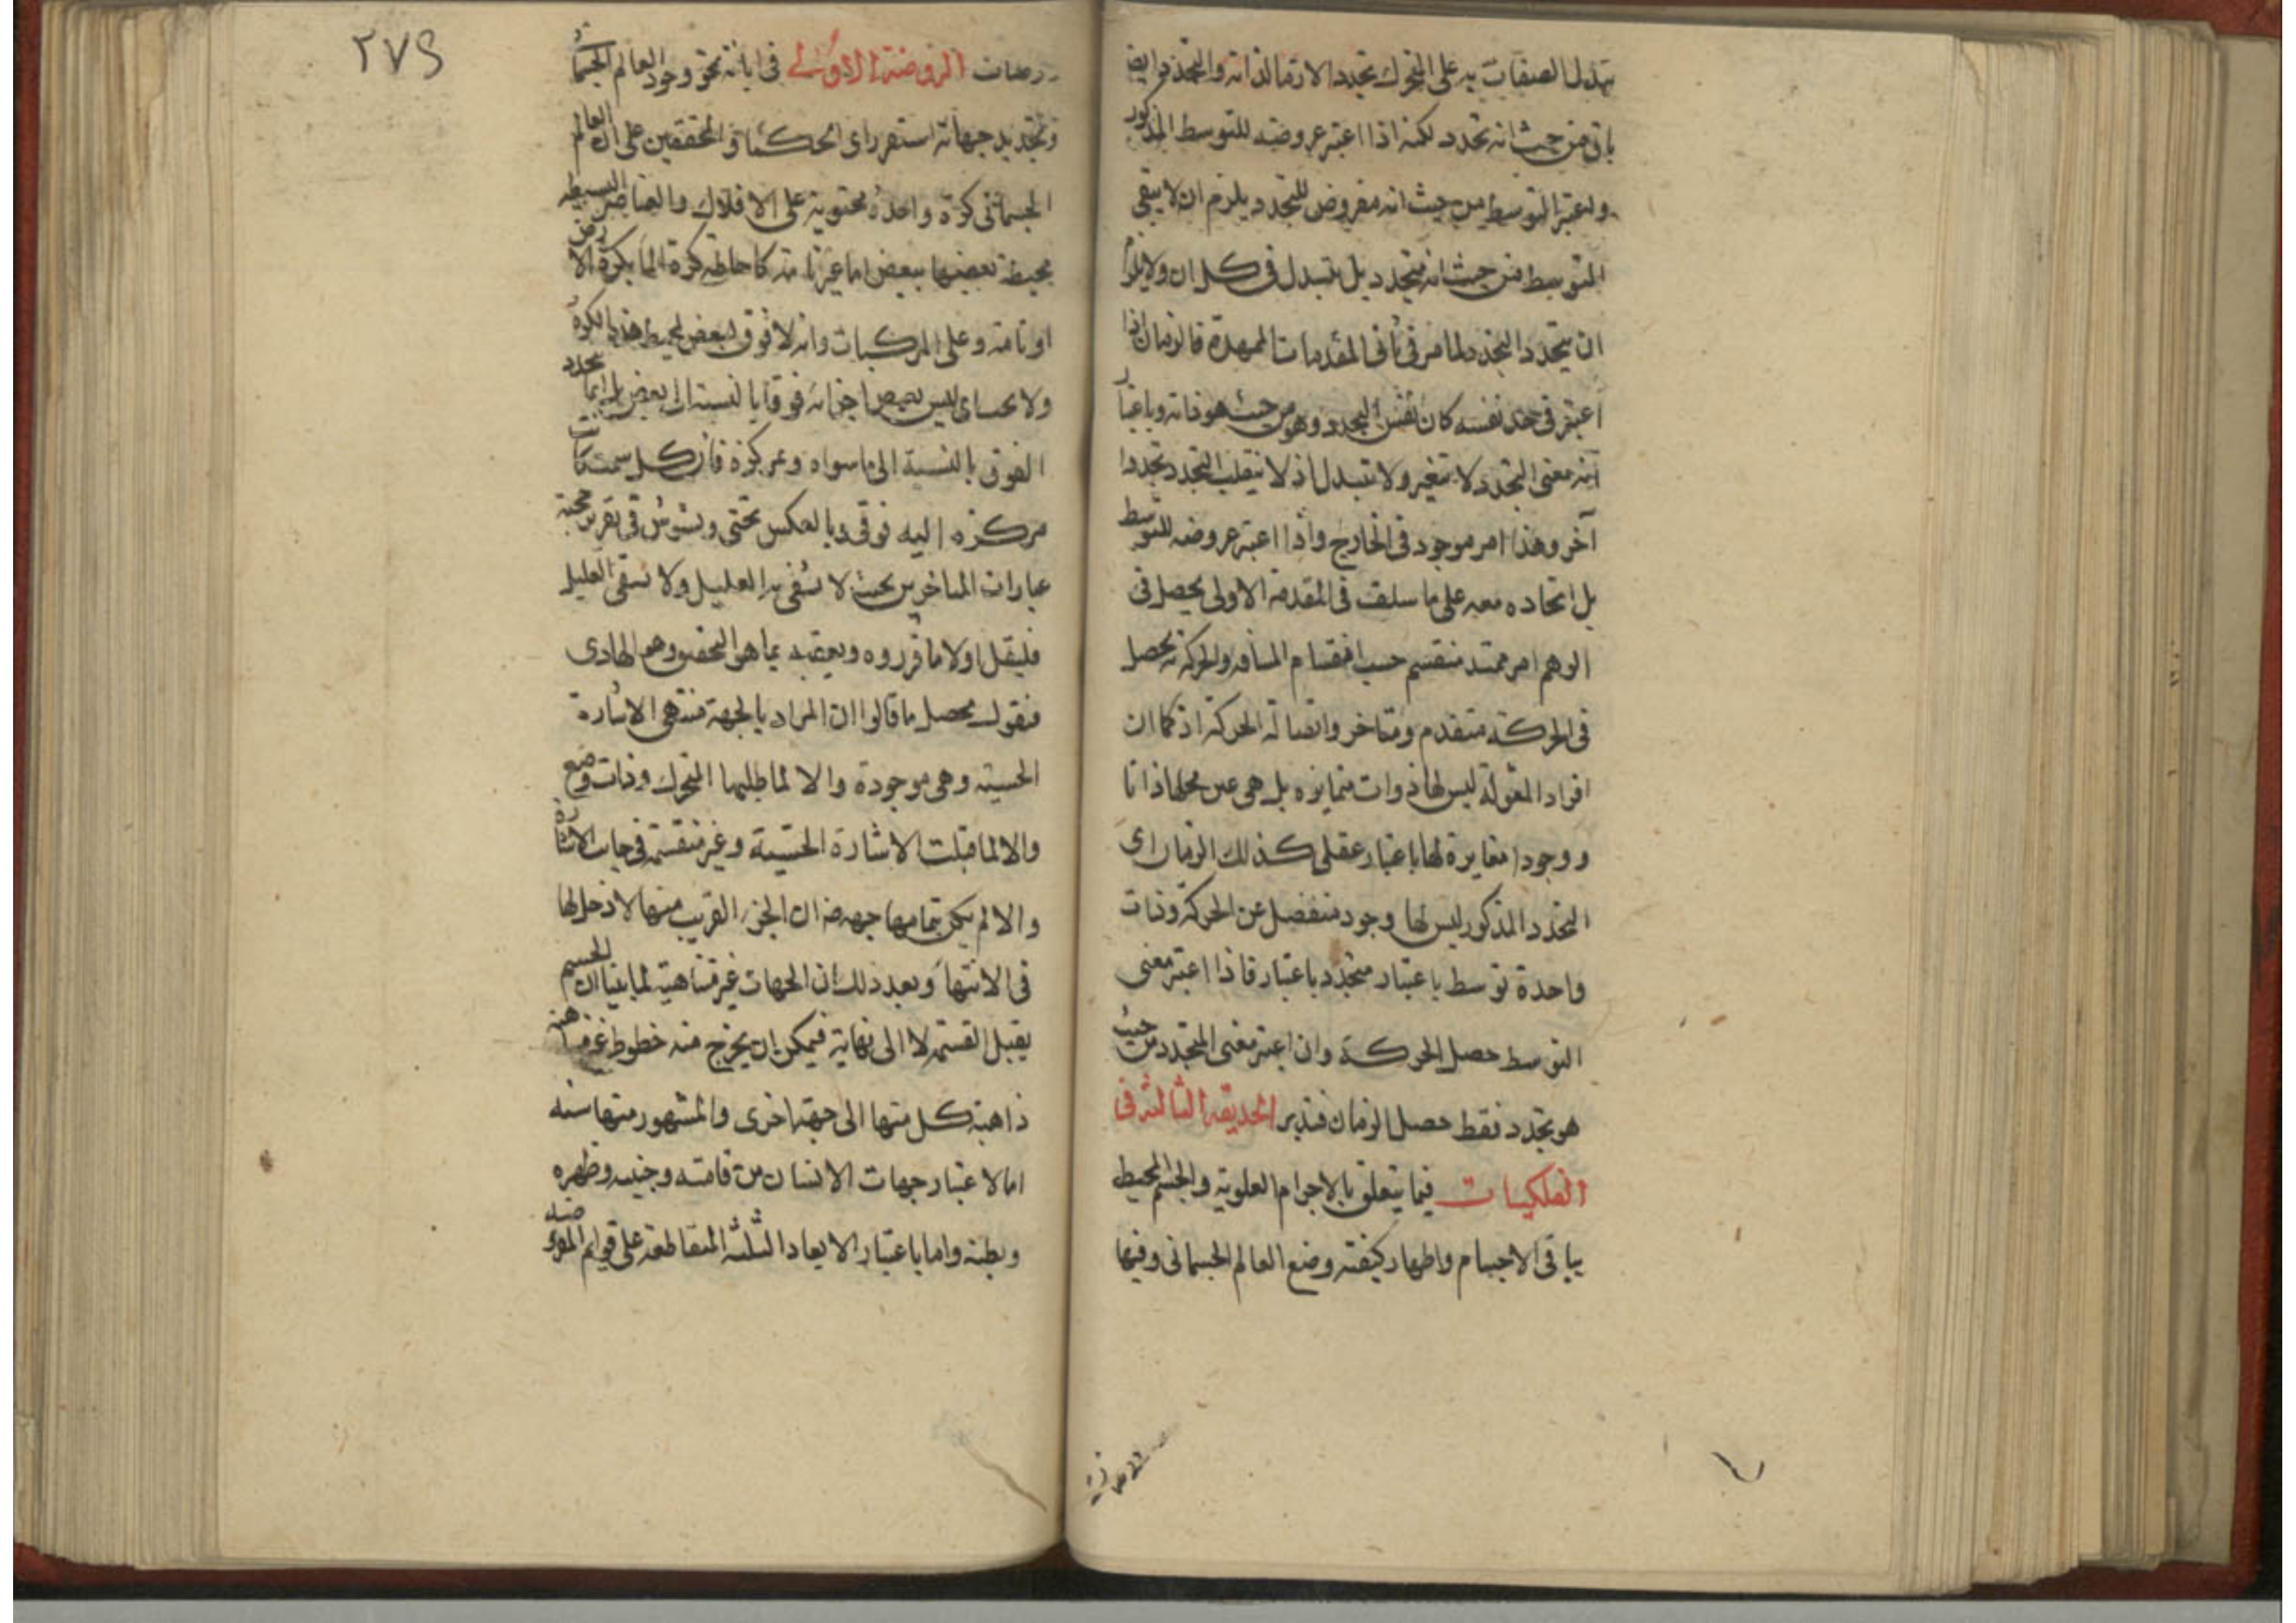 تبدل الصفات به على المتحرك تجدد الارتقا لذاته والتجدد ايضا
باق من حيث انه تجدد لكنه اذا اعتبر عروضه للتوسط المذكور
ولعتبر التوسط من حيث انه معروض للتجدد يلزم ان لا يبقى
التوسط من حيث انه متجدد بل يتبدل فى كل ان ولا يلزم
ان يتجدد التجدد لما مر فى ثانى المقدمات الممهدة فالزمان اذا
اعتبر فى حد نفسه كان نفس التجدد وهو من حيث هو ذاته وباعتبار
انه معنى التجدد لا تتغير ولا تتبدل اذ لا ينقلب التجدد تجددا
آخر وهذا امر موجود فى الخارج واذا اعتبر عروضه للتوسط
بل اتحاده معه على ما سلف فى المقدمة الاولى يحصل فى
الوهم امر ممتد منقسم حسب انقسام المسافه والحركة يحصل
فى الحركة متقدم ومتاخر واتصاله الحركة اذ كما ان
افراد المقولة ليس لها ذوات متمايزه بل هى عين محلها ذاتا
ووجودا مغايرة لها باعتبار عقلى كذلك الزمان اى
التجدد المذكور ليس لها وجود منفصل عن الحركة وذات
واحدة توسط باعتبار متجدد باعتبار فاذا اعتبر معنى
التوسط حصل الحركة وان اعتبر معنى المتجدد من حيث
هو تجدد فقط حصل الزمان فتدبر الحديقة الثالثة فى
الفلكيات فيما يتعلق بالاجرام العلوية والجسم المحيط
بباقى الاجسام واظهار كيفية وضع العالم الجسمانى وفيها
٢٧٩
روضات الروضة الاولى فى ابانة نحو وجود العالم الجسمانى
وتحديد جهاته استقر راى الحكماء والمحققين على ان العالم
الجسمانى كرة واحدة محتوية على الافلاك والعناصر البسيطه
محيطة بعضها ببعض اما غير تامة كاحاطة كرة الما بكرة الارض
او تامة وعلى المركبات وانه لا فوق لبعض محيط هذه الكرة
ولا تحت اى ليس لبعض اجزائه فوقا بالنسبة الى بعض بل انما تحدد
الفوق بالنسبة الى ما سواه وعر كزه فان كل سمت كانت
مركزه اليه فوقى وبالعكس تحتى ويشوش فى تقرير حجته
عبارات المتاخرين بحيث لا تشفى به العليل ولا تسقى الغليل
فلينقل اولا ما قرروه ونعقبه بما هو التحقيق وهو الهادى
فنقول محصل ما قالوا ان المراد بالجهة منتهى الاشارة
الحسية وهى موجودة والا لما طلبها المتحرك وذات وضع
والا لما قبلت الاشارة الحسية وغير منقسمة فى جهات الاشارة
والا لم يكن بتمامها جهه ضه ان الجزء القريب منها لا دخل لها
فى الانتها وبعد ذلك ان الجهات غير متناهية لما بينا ان الجسم
يقبل القسمة لا الى نهاية فيمكن ان يخرج منه خطوط غير متناهية
ذاهبة كل منها الى جهة اخرى والمشهور منها سته
اما لاعتبار جهات الانسان من قامته وجنبيه وظهره
وبطنه واما باعتبار الابعاد الثلثة المتقاطعة على قوايم المفروضه